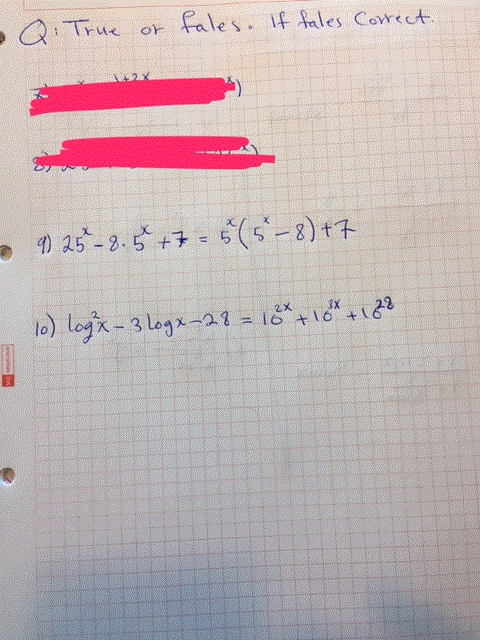 Q: True or fales. If fales Correct.
9) 25^x - 8 · 5^x + 7 = 5^x (5^x - 8) + 7
10) log^2 x - 3 log x - 28 = 10^2x + 10^3x + 10^28